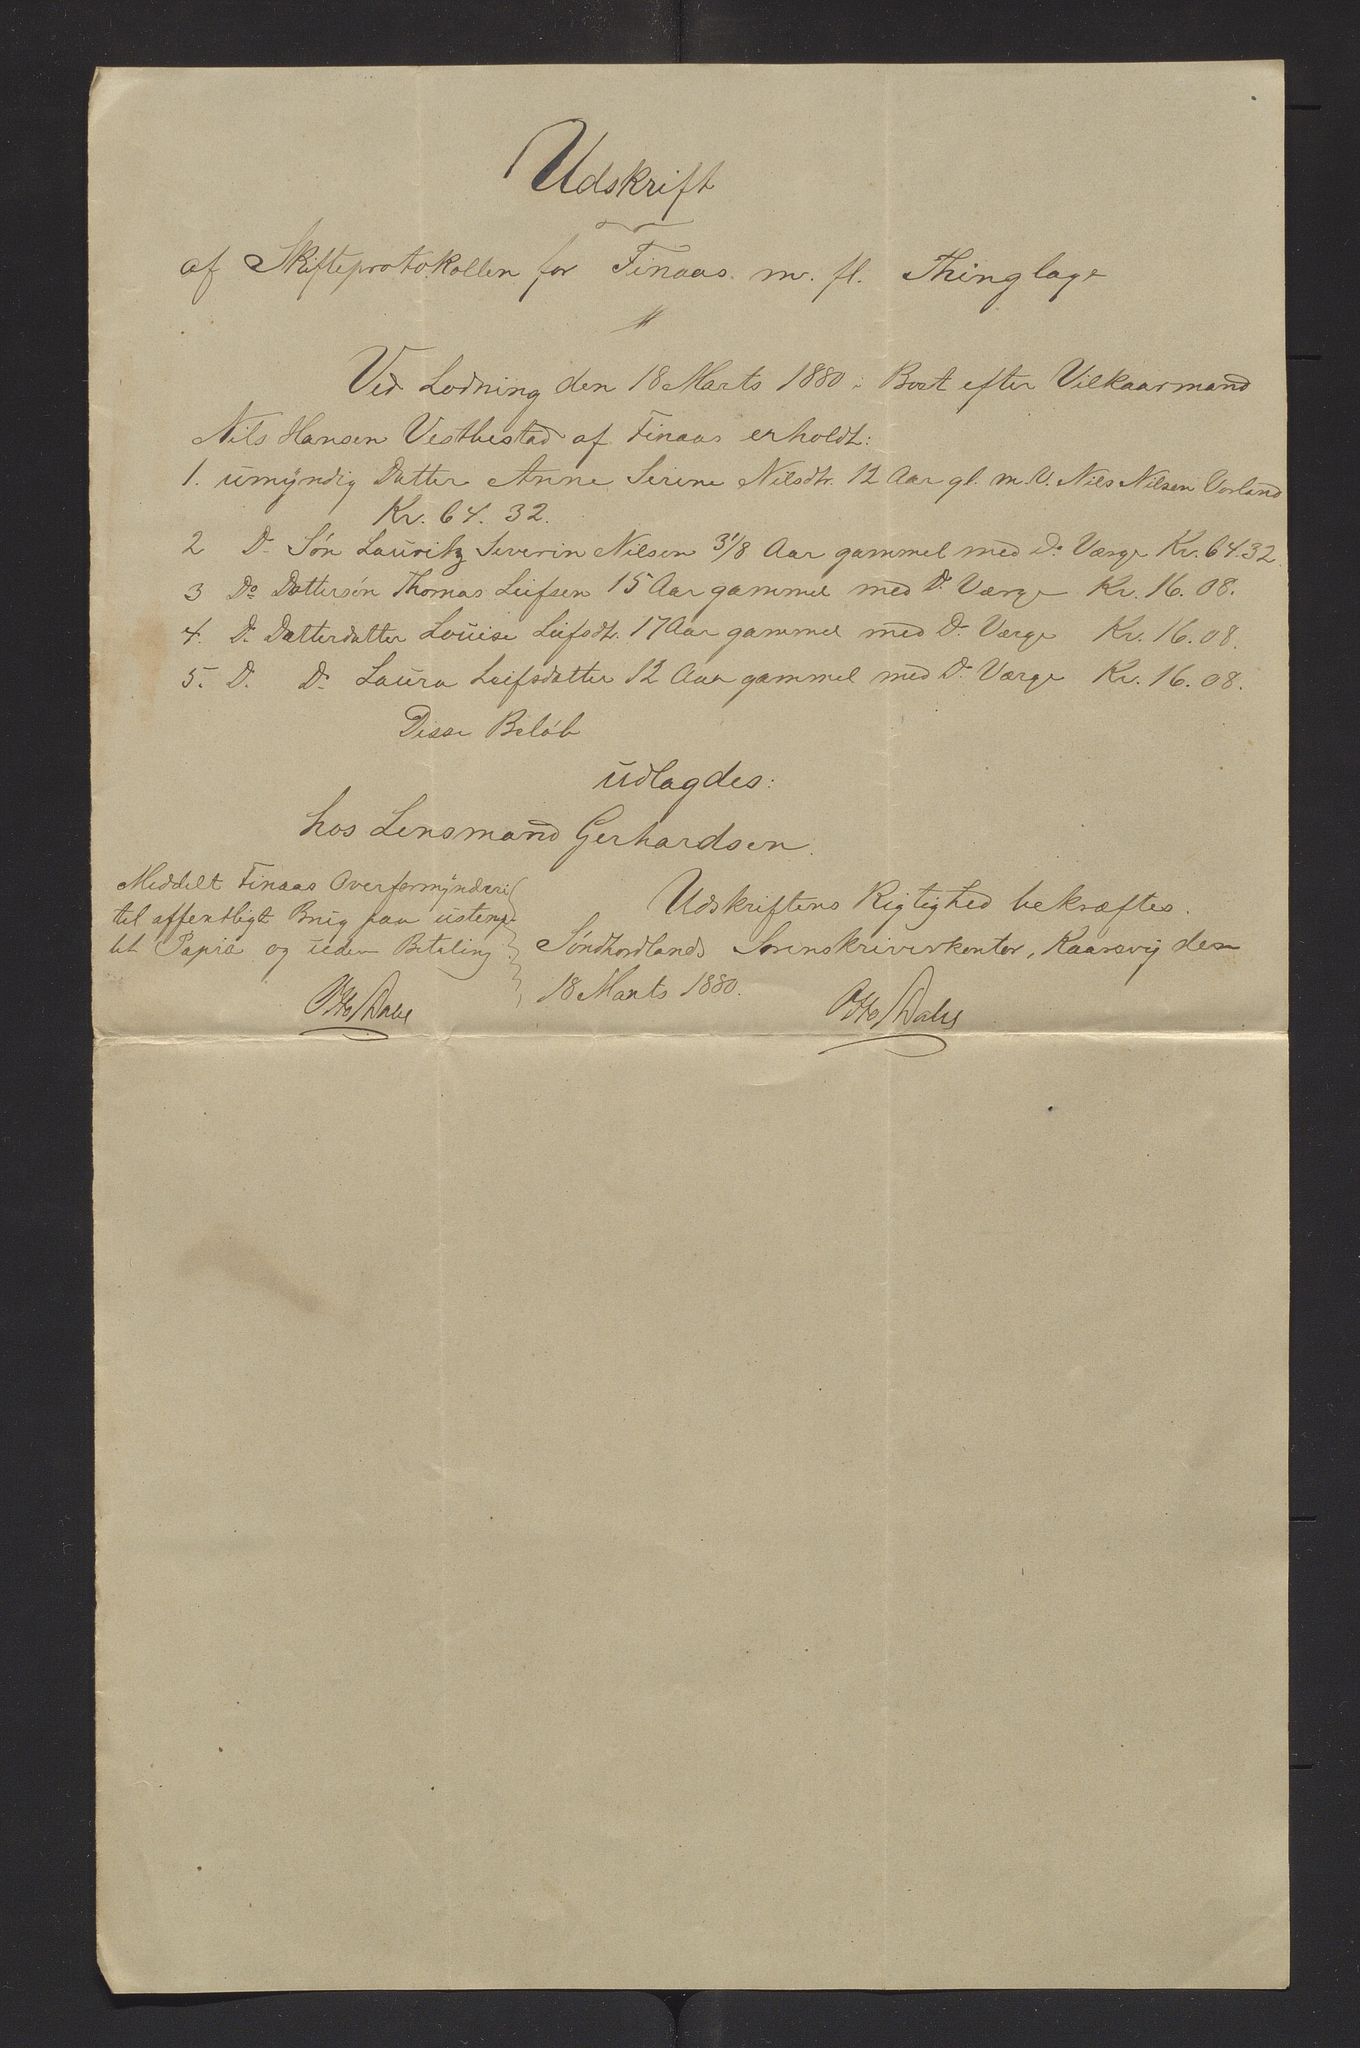 Udskrift
af Skifteprotokollen for Finaas m. fl. Thinglage
Ved Lodning den 18 Marts 1880 i Boet efter Vilkaarmand
Nils Hansen Vestbestad af Finaas erholdt:
1. umyndig Datter Anne Serine Nilsdtr. 12 Aar gl. m. V. Nils Nilsen Vorland
Kr. 64. 32.
2 Do Søn Lauritz Severin Nilsen 3 1/8 Aar gammel med Do Værge Kr. 64.32.
3 Do Dattersøn Thomas Leifsen 15 Aar gammel med Do Værge Kr. 16. 08.
4. Do Datterdatter Louise Leifsdtr. 17 Aar gammel med Do Værge Kr. 16. 08.
5. Do Do Laura Leifsdatter 12 Aar gammel med Do Værge Kr. 16. 08.
Disse Beløb
udlagdes:
hos Lensmand Gerhardsen.
Meddelt Finaas Overformynderi
til offentligt Brug paa ustemp-
let Papir og uden Betaling.
Otto Dahl
Udskriftens Rigtighed bekræftes.
Søndhordlands Sorenskriverkontor, Kaarevig den
18 Marts 1880.
Otto Dahl